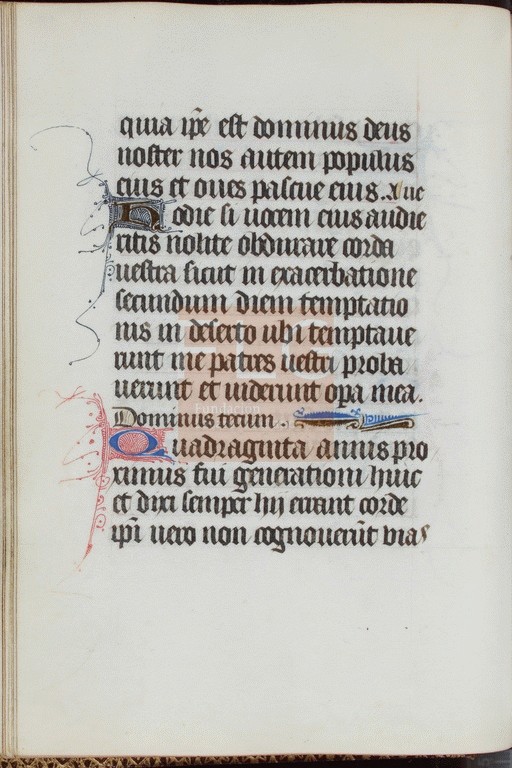 quia ip̄e est dominus deus
noster nos autem populus
eius et oues pascue eius. Aue
Hodie si uocem eius audie
ritis nolite obdurare corda
uestra sicut in exacerbatione
secundum diem temptatio
nis in deserto ubi temptaue
runt me patres uestri proba
uerunt et uiderunt opa mea.
Dominus tecum.
Quadraginta annis pro
ximus fui generationi huic
et dixi semper hij errant corde
ip̄i uero non cognouerūt vias